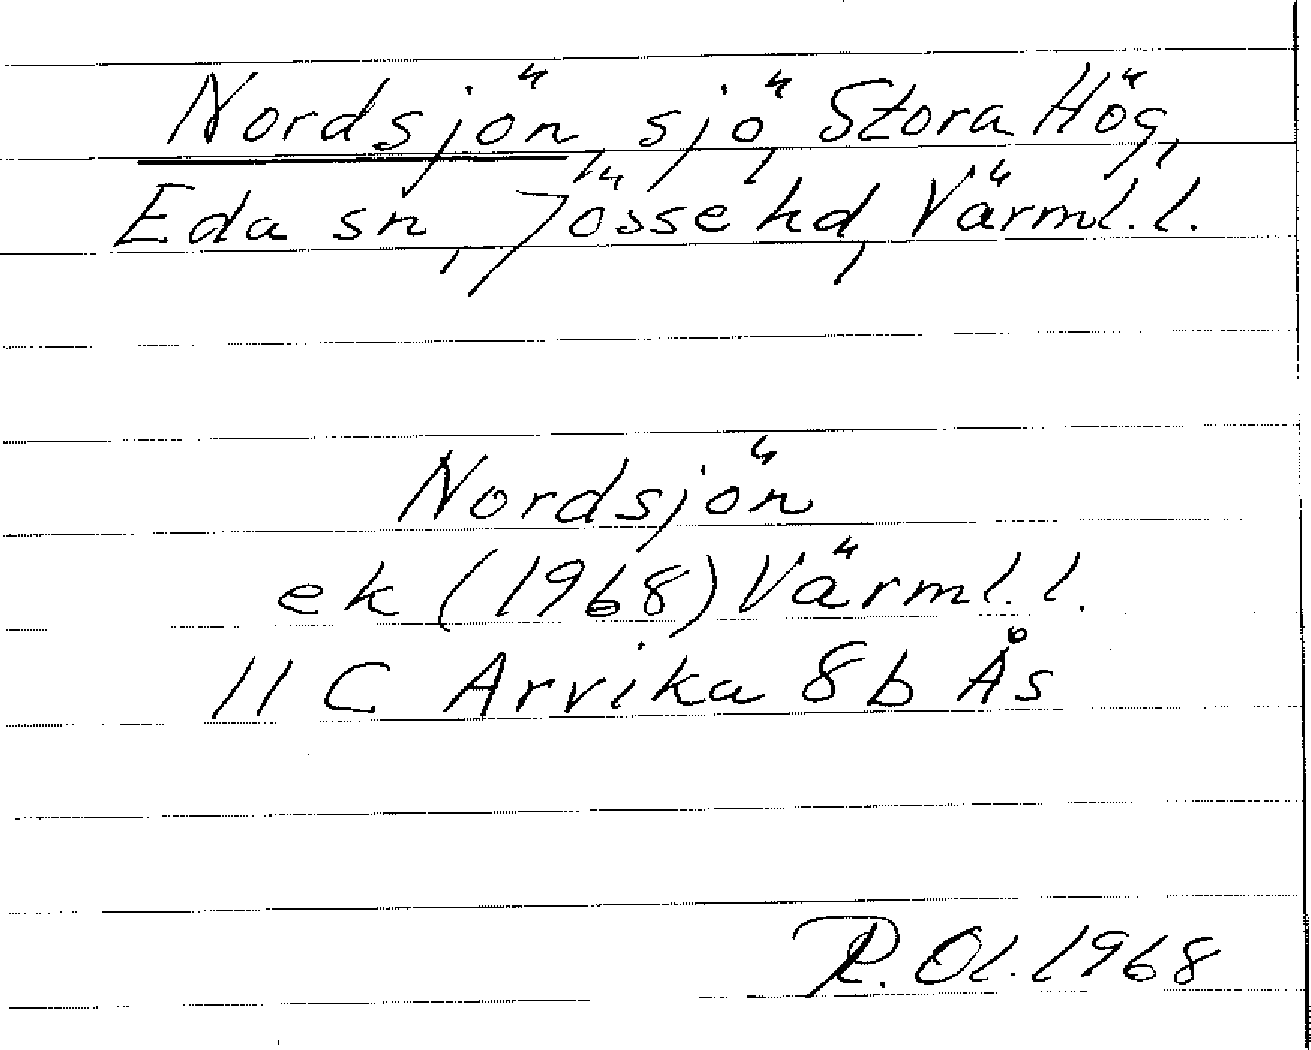 Nordsjön, sjö, Stora Hög,
Eda sn, Jösse hd, Värml. l.
Nordsjön
ek (1968) Värml. l.
11 C Arvika 8b Ås
R. Ol. 1968